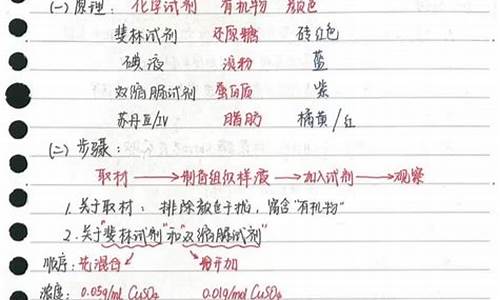 (一)原理: 化学试剂 有机物 颜色
斐林试剂 还原糖 砖红色
碘液 淀粉 蓝
双缩脲试剂 蛋白质 紫
苏丹Ⅲ/Ⅳ 脂肪 橘黄/红
(二)步骤:
取材 → 制备组织样液 → 加入试剂 → 观察
1.关于取材: 排除颜色干扰,富含"有机物"
2.关于"斐林试剂"和"双缩脲试剂"
顺序:先混合 分开加
浓度: 0.05g/ml CuSO4 0.01g/ml CuSO4